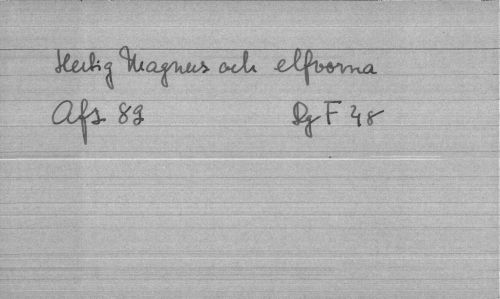 Hertig Magnus och elfvorna
Afs 89
Dg F 48